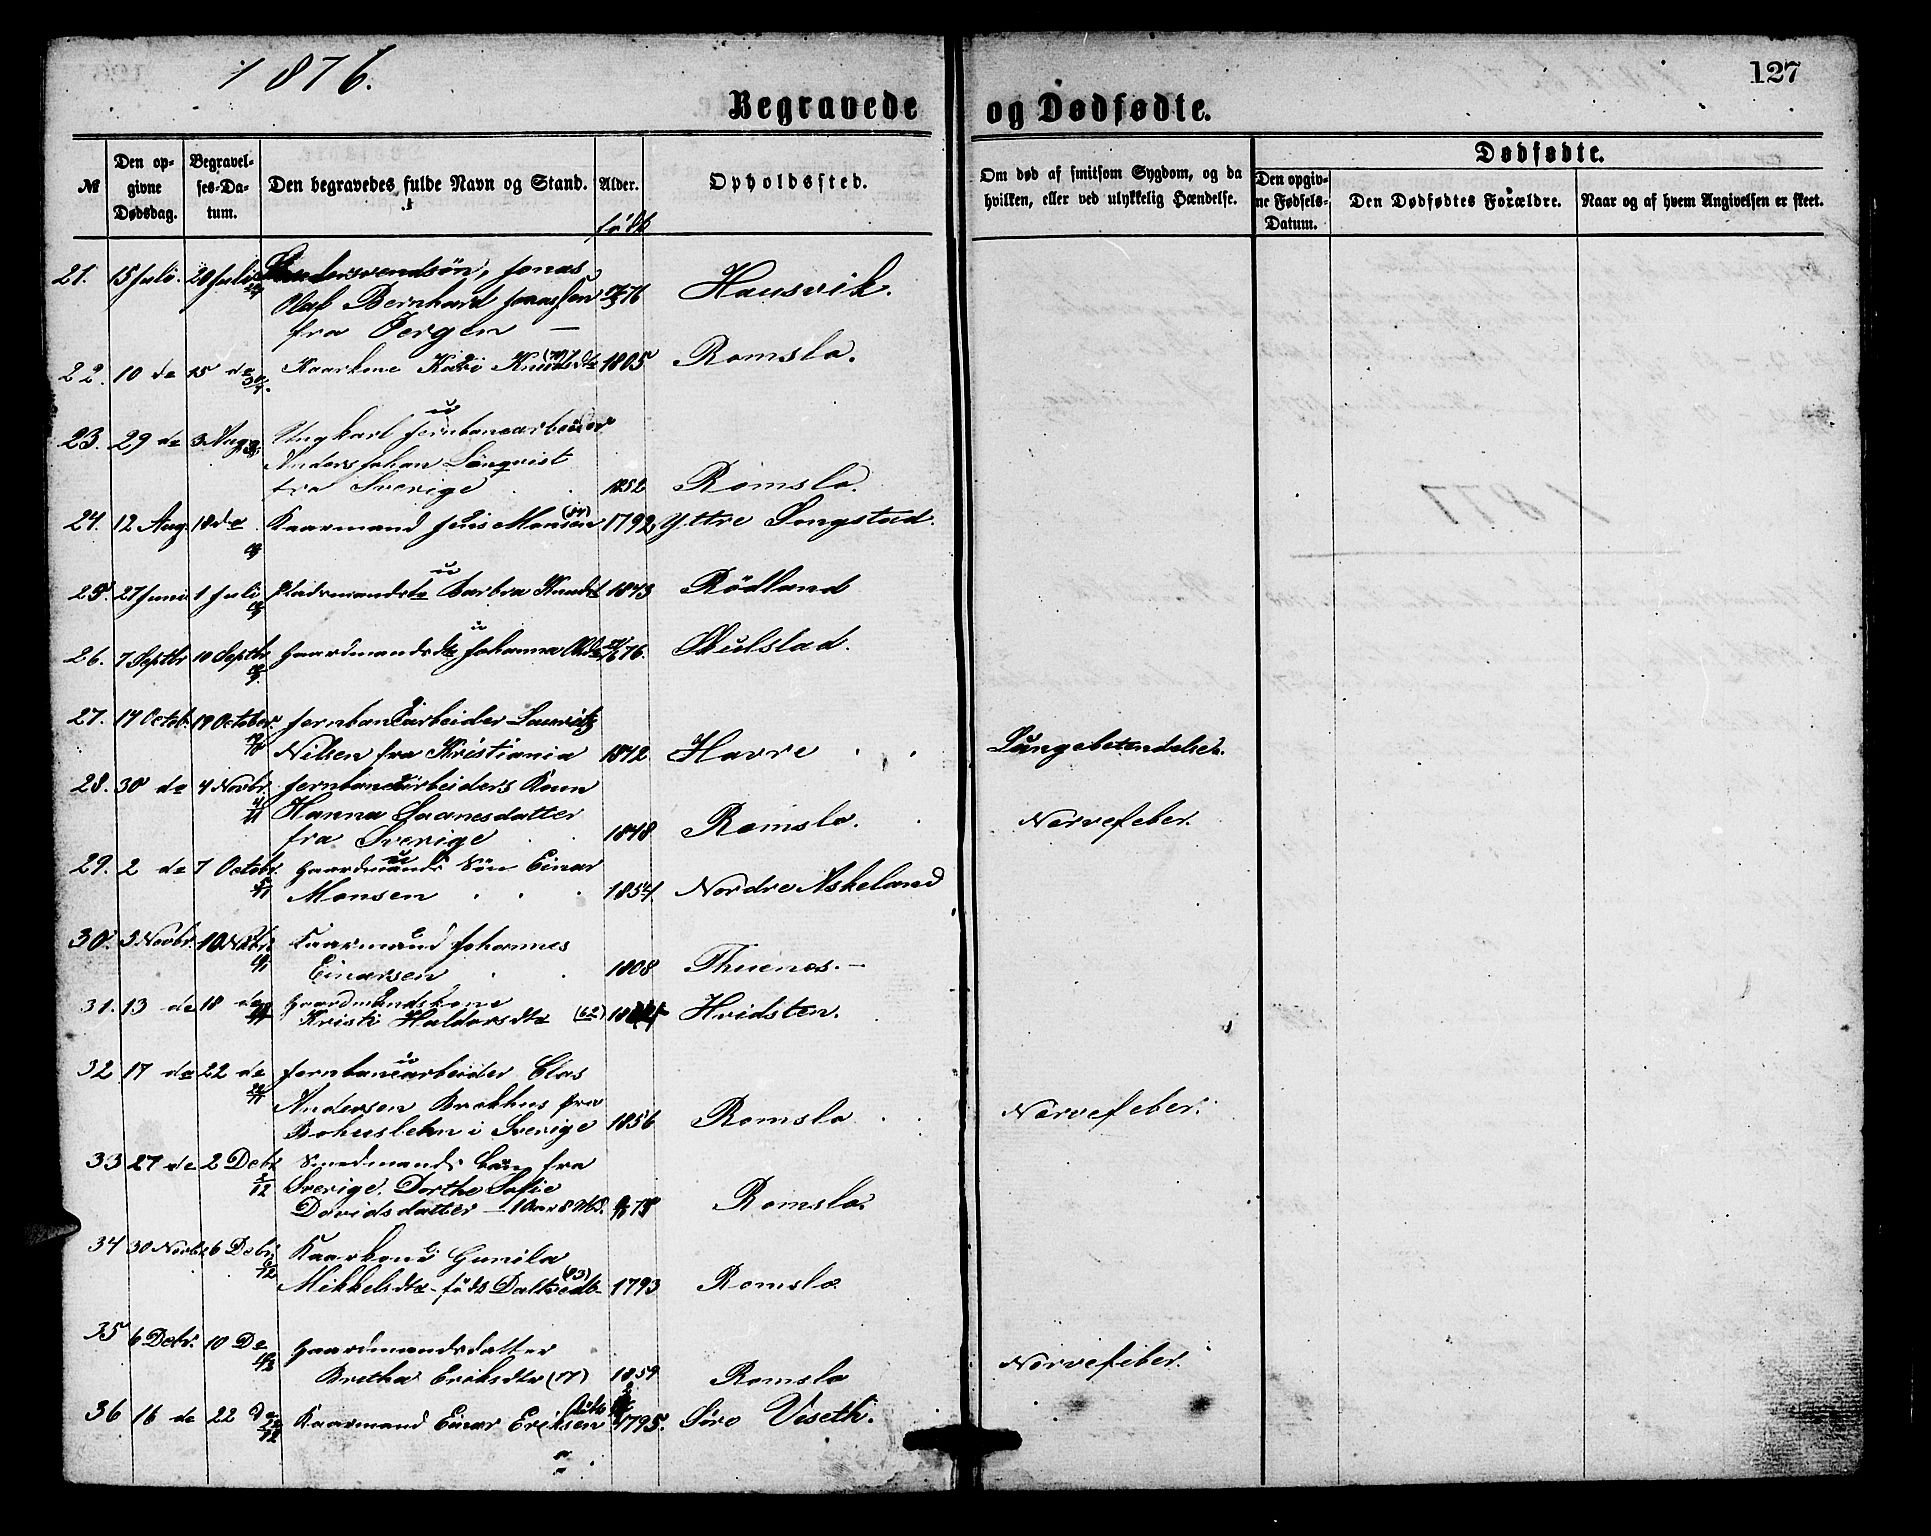 1876.
127
Begravede og Dødfødte.
№
Den opgivne Dødsdag.
Begravelses-Datum.
Den begravedes fulde Navn og Stand.
Alder.
født
Opholdssted.
Om død af smitsom Sygdom, og da hvilken, eller ved ulykkelig Hændelse.
Dødfødte.
Den opgivne Fødsels-Datum.
Den Dødfødtes Forældre.
Naar og af hvem Angivelsen er skeet.
21. 15 Juli. 20 Juli Jonas
Olaf Bernhard Jonassen 76 Hausvik.
fra Bergen —
22. 10 do 15 do Kaarkone Kari Knudsdtr 1805 Romslo.
23. 29 do 3 Aug Ungkarl Jernbanearbeider
Anders Johan Lönqvist
fra Sverige 1852 Romslo.
24. 12 Aug 18 do Kaarmand Jens Monsen (84) 1792 Yttre Songstad.
25. 27 Juni 1 Juli Pladsmandsdtr Barbra Knudsd 1873 Rödland
26. 7 Septbr 10 Septbr Gaardmandsdtr Johanna 76. Skulstad.
27. 14 Octob. 19 October Jernbanearbeider Lauritz
Nilsen fra Kristiania 1842 Havre Lungebetændelse.
28. 30 do 4 Novbr. Jernbanearbeiders Barn
Hanna
fra Sverige 1848 Romslo. Nervefeber.
29. 2 do 7 Octobr. Gaardmands Sön Einar
Monsen 1854 Nordre Askeland
30. 5 Novbr. 10 Novbr. Kaarmand Johannes
Einarsen 1808 Thuenes.—
31. 13 do 18 do Gaardmandskone
Kristi Haldorsdtr (62) Hvidsten.
32 17 do 22 do Jernbanearbeider Clas
Andersen Brekhus fra
Bohuslehn i Sverige 1856 Romslo Nervefeber.
33 27 do 2 Decbr 2/12 Barn fra
Sverige. Dorthe Sofie
Davidsdatter — 1 Aar 8 Md. 75 Romslo.
34 30 Novbr 6 Decbr 6/12 Kaarkone Gunila
Mikkelsdtr – födt Daltvedt (83) 1793 Romslo
35 6 Decbr. 10 Do Gaardmandsdatter
Bretha Eriksdtr (17) 1859 Romslo Nervefeber.
36 16 do 22 do 22/12 Kaarmand Einar Eriksen 1795. Söre Veseth.